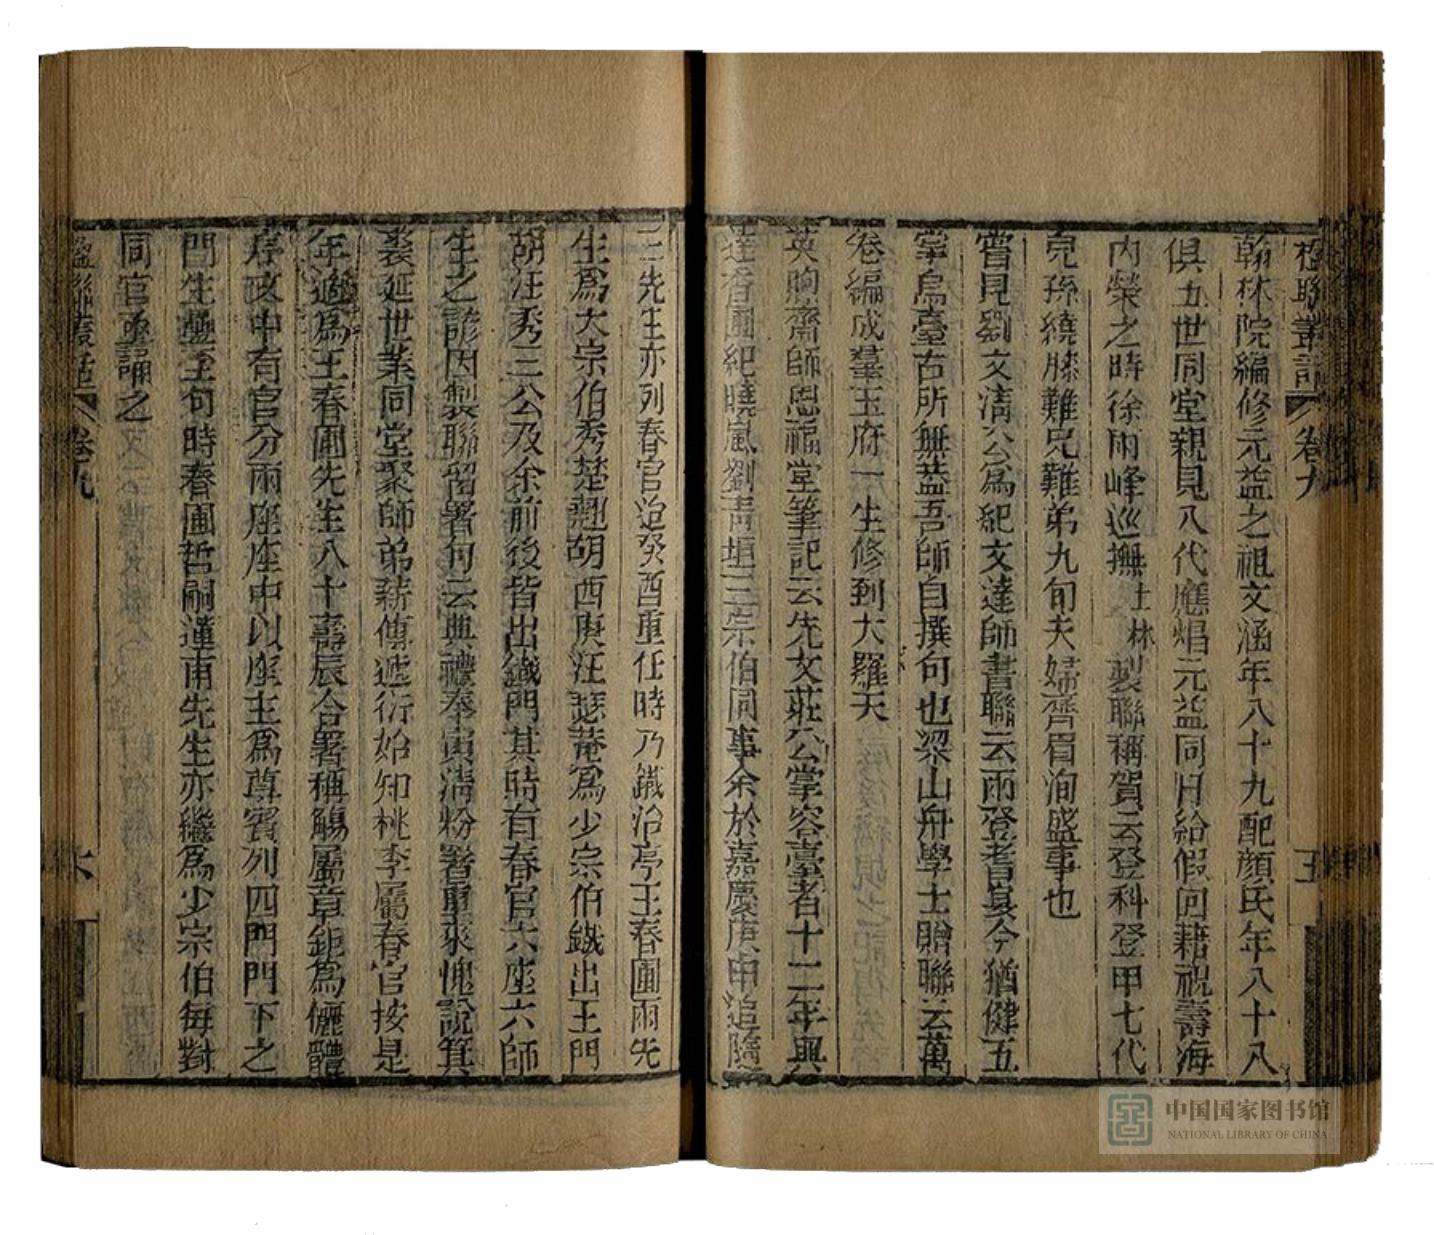 楹聯叢話 卷九 五
翰林院編修元益之祖文涵年八十九配顏氏年八十八
俱五世同堂親見八代應焻元益同日給假回籍祝壽海
内榮之時徐兩峰巡撫士林製聯稱賀云登科登甲七代
兒孫繞膝難兄難弟九旬夫婦齊眉洵盛事也
嘗見劉文清公爲紀文達師書聯云兩登耆宴今猶健五
掌烏臺古所無葢吾師自撰句也梁山舟學士贈聯云萬
卷編成羣玉府一生修到大羅天
英煦齋師恩福堂筆記云先文莊公掌容臺者十二年與
達香圃紀曉嵐劉青垣三宗伯同事余於嘉慶庚申追隨
三先生亦列春官迨癸酉重任時乃鐵冶亭王春圃兩先
生爲大宗伯秀楚翹胡西庚汪瑟菴爲少宗伯鐵出王門
胡汪秀三公及余前後皆出鐵門其時有春官六座六師
生之諺因製聯留署何云典禮奉寅清粉署重來愧說箕
裘延世業同堂聚師弟薪傳遞衍始知桃李屬春官按是
年適爲王春圃先生八十壽辰合署稱觴屬章鉅爲儷體
序文中有官分兩座座中以座主爲尊賓列四門門下之
門生曡至句時春圃哲嗣蓮甫先生亦繼爲少宗伯每對
同官亟誦之
楹聯叢話 卷九 六
中国国家图书馆
NATIONAL LIBRARY OF CHINA